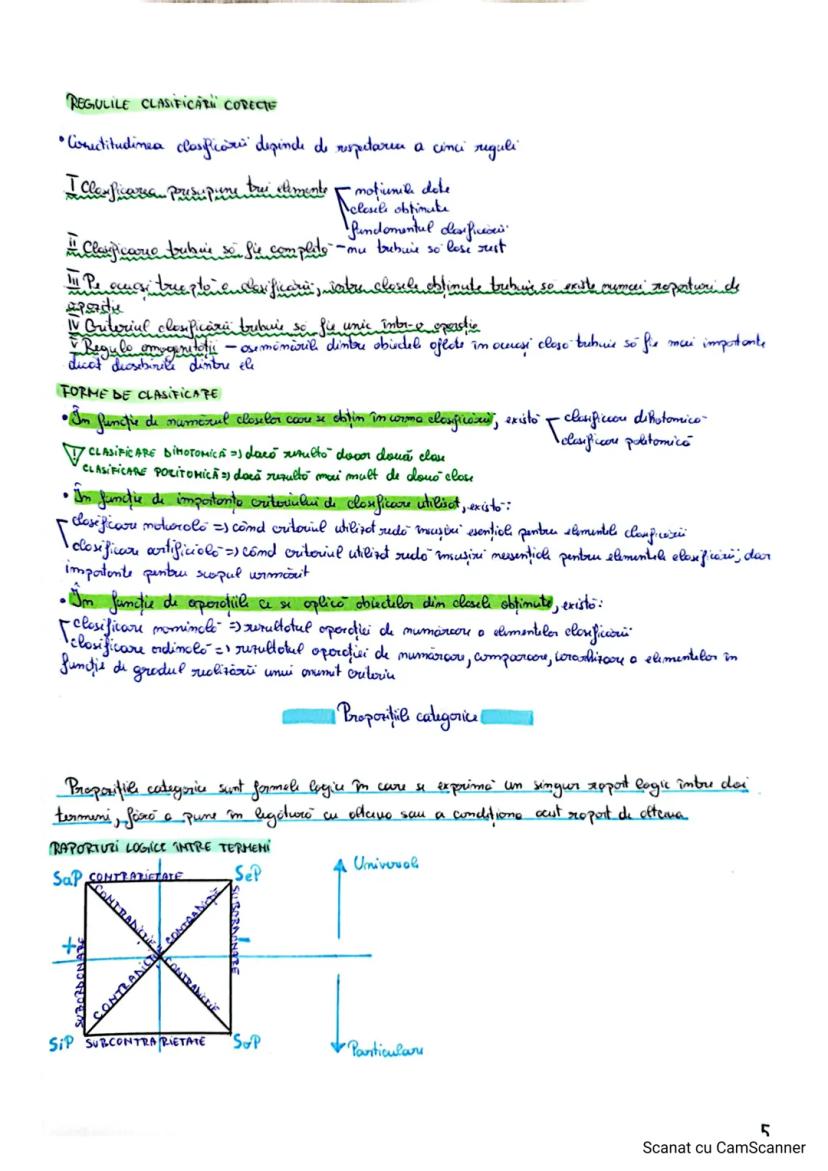 REGULILE CLASIFICĂRII CORECTE
• Corectitudinea clasificării depinde de respectarea a cinci reguli
I Clasificarea presupune trei elemente noțiunile date
clasele obținute
fundamentul clasificării
II Clasificarea trebuie să fie completă - nu trebuie să lase rest
III Pe aceași treaptă a clasificării, între clasele obținute trebuie să existe numai raporturi de
opoziție
IV Criteriul clasificării trebuie să fie unic într-o operație
V Regula omogenității - asemănările dintre obiectele aflate în aceași clasă trebuie să fie mai importante
decât deosebirile dintre ele
FORME DE CLASIFICARE
• În funcție de numărul claselor care se obțin în urma clasificării, există clasificare dihotomică
clasificare politomică
! CLASIFICARE DIHOTOMICĂ => dacă rezultă doar două clase
CLASIFICARE POLITOMICĂ => dacă rezultă mai mult de două clase
• În funcție de importanța criteriului de clasificare utilizat, există:
clasificare naturală => când criteriul utilizat redă însușiri esențiale pentru elementele clasificării
clasificare artificială => când criteriul utilizat redă însușiri neesențiale pentru elementele clasificării, dar
importante pentru scopul urmărit
• În funcție de operațiile ce se aplică obiectelor din clasele obținute, există:
clasificare nominală => rezultatul operației de numărare a elementelor clasificării
clasificare ordinală => rezultatul operației de numărare, comparare, ierarhizare a elementelor în
funcție de gradul realizării unui anumit criteriu
Propozițiile categorice
Propozițiile categorice sunt formele logice în care se exprimă un singur raport logic între doi
termeni, fără a pune în legătură cu altceva sau a condiționa acest raport de altceva
RAPORTURI LOGICE ÎNTRE TERMENI
SaP CONTRARIETATE SeP
Universale
CONTRADICȚIE CONTRADICȚIE
+ -
SUBORDONARE SUBORDONARE
CONTRADICȚIE CONTRADICȚIE
SiP SUBCONTRARIETATE SoP
Particulare
5
Scanat cu CamScanner